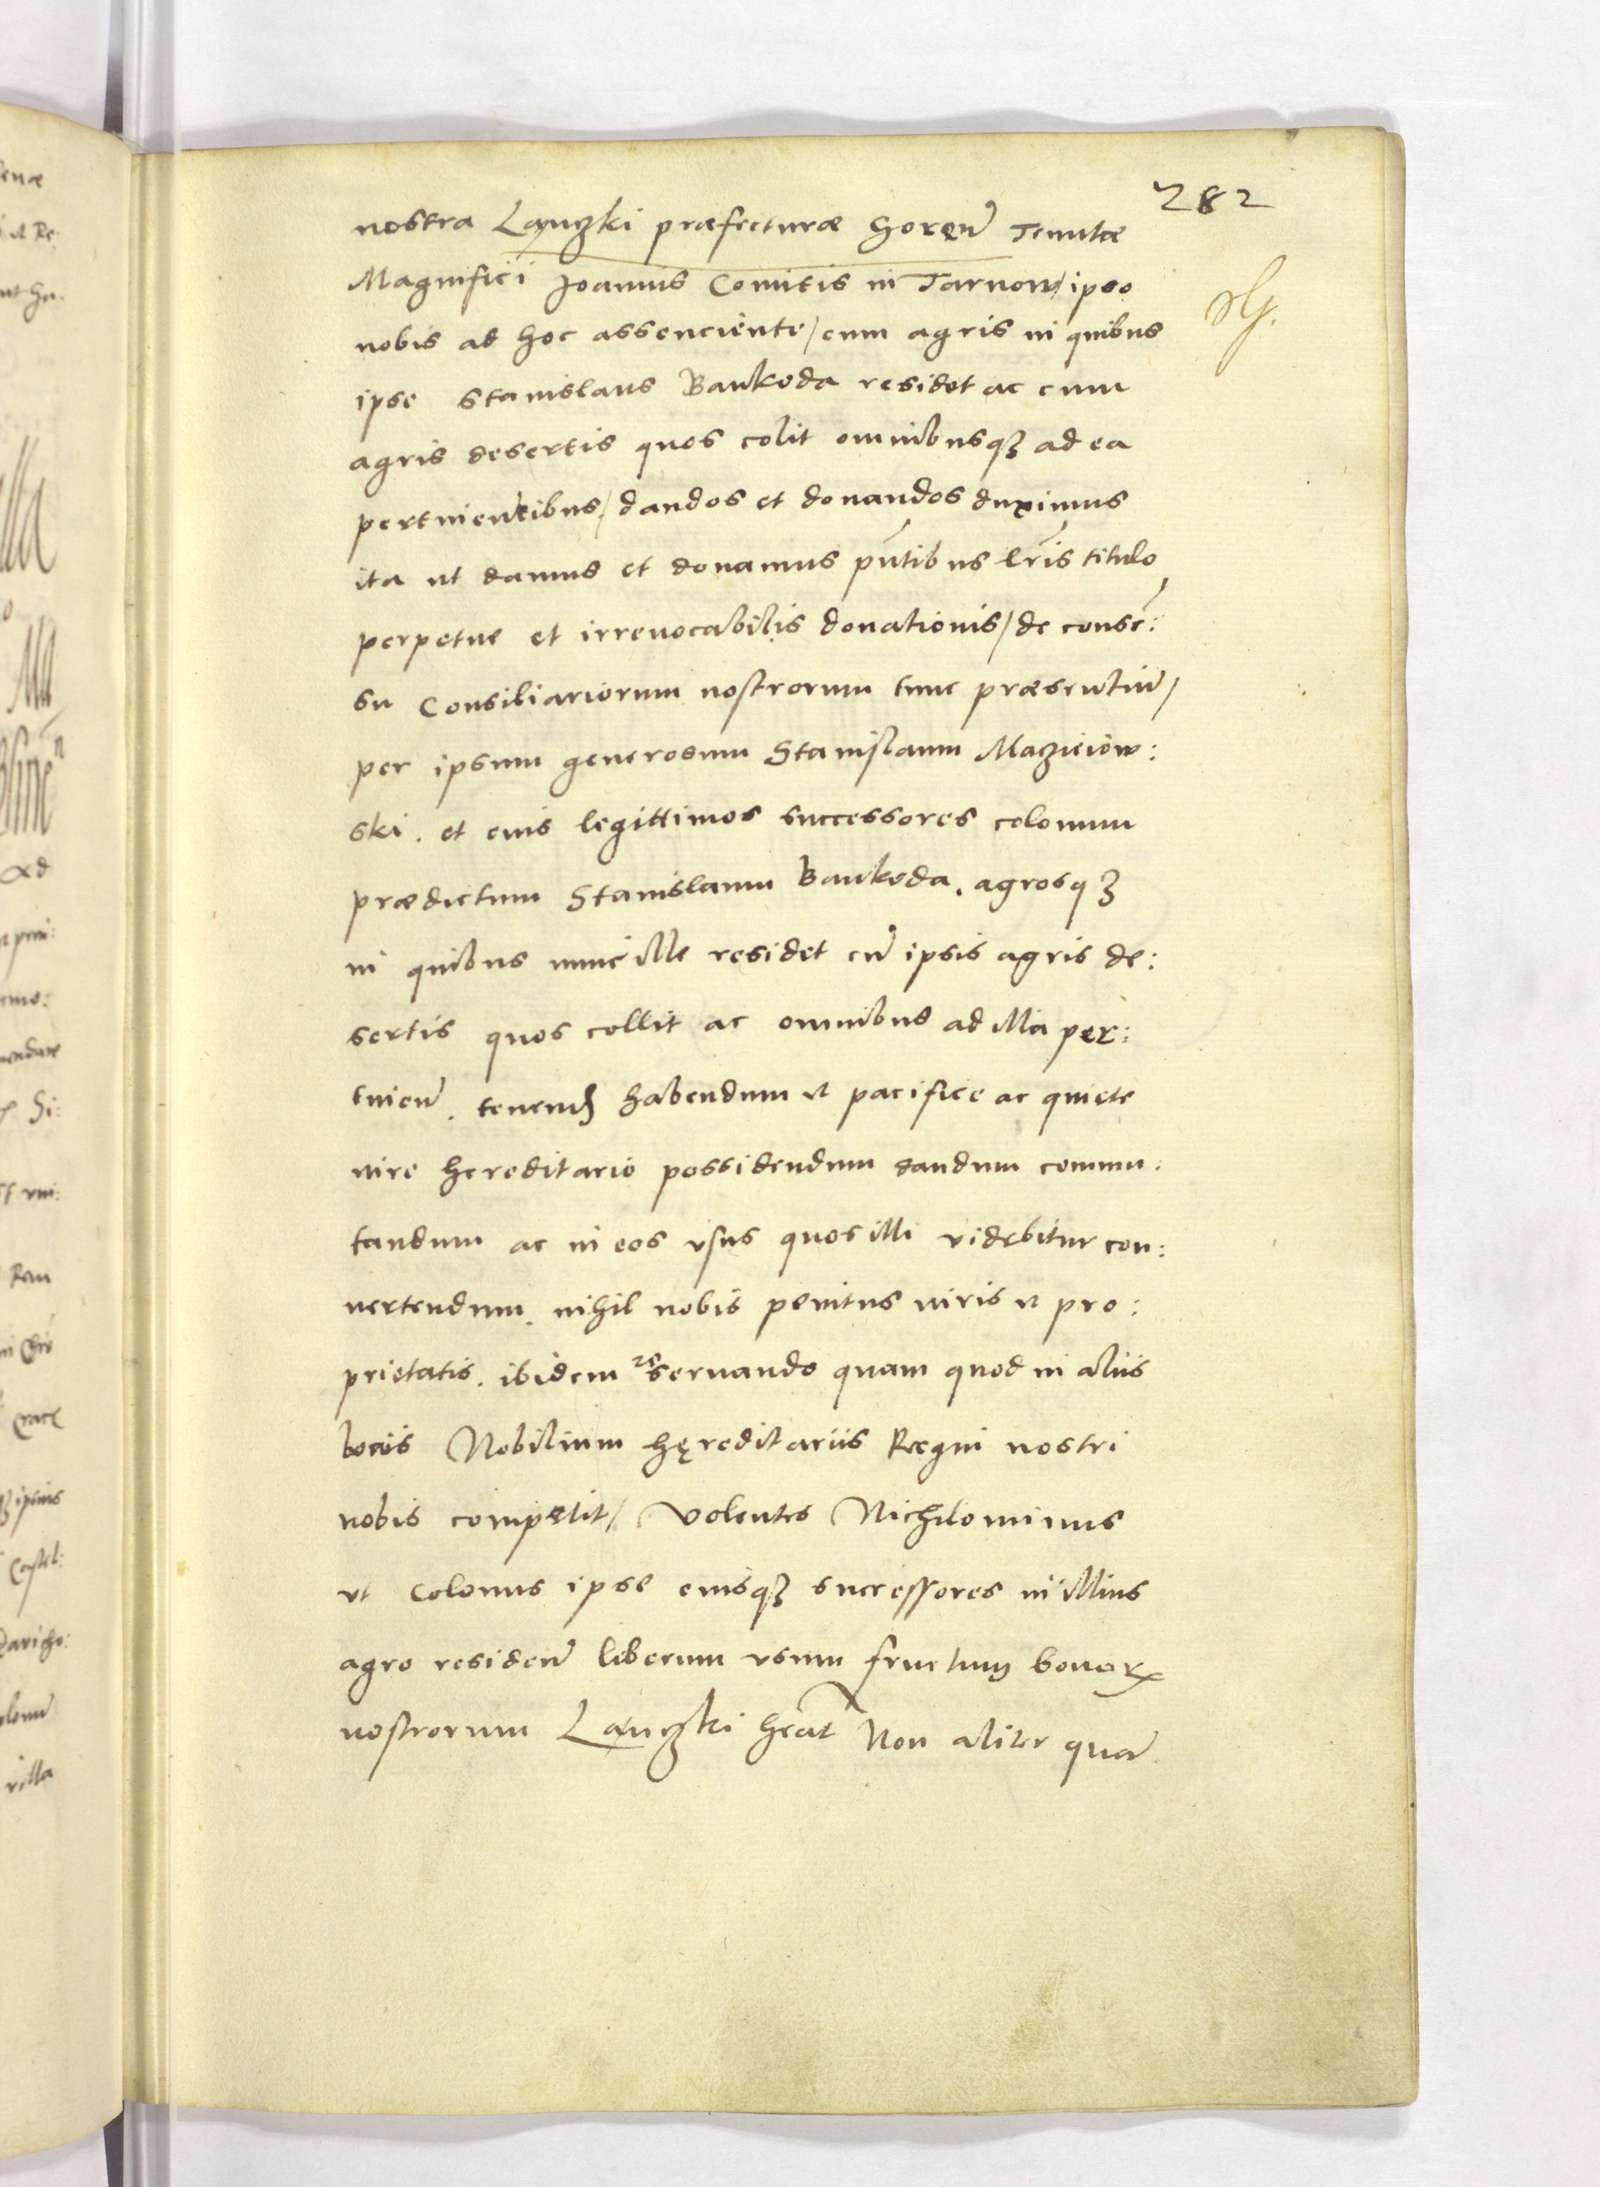 282
nostra Lanczki præfecturæ Goren̄ Tenutæ
Magnifici Joannis Comitis in Tarnow / ipso
nobis ad hoc assenciente / cum agris in quibus
ipse Stanislaus Bankoda residet ac cum
agris desertis quos colit omnibusqꝫ ad ea
pertinentibus / dandos et donandos duximus
ita ut damus et donamus pñtibus lr̃is titulo
perpetue et irreuocabilis donationis / de consē:
su Consiliariorum nostrorum tunc præsentiū /
per ipsum generosum Stanislaum Macziciow:
ski. et eius legittimos successores colonum
prædictum Stanislaum Bankoda. agrosqꝫ
in quibus nunc ille residet cū ipsis agris de:
sertis quos collit ac omnibus ad illa per:
tinen̄. tenend̃ habendum et pacifice ac quiete
iure hereditario possidendum dandum commu:
tandum ac in eos vsus quos illi videbitur con:
uertendum. nihil nobis penitus iuris et pro:
prietatis. ibidem reseruando quam quod in aliis
bonis Nobilium hęreditariis Regni nostri
nobis competit / Volentes Nichilominus
vt Colonus ipse eiusqꝫ successores in illius
agro residen̄ liberum vsum fructum bonorꝝ
nostrorum Lanczki heāt Non aliter quā